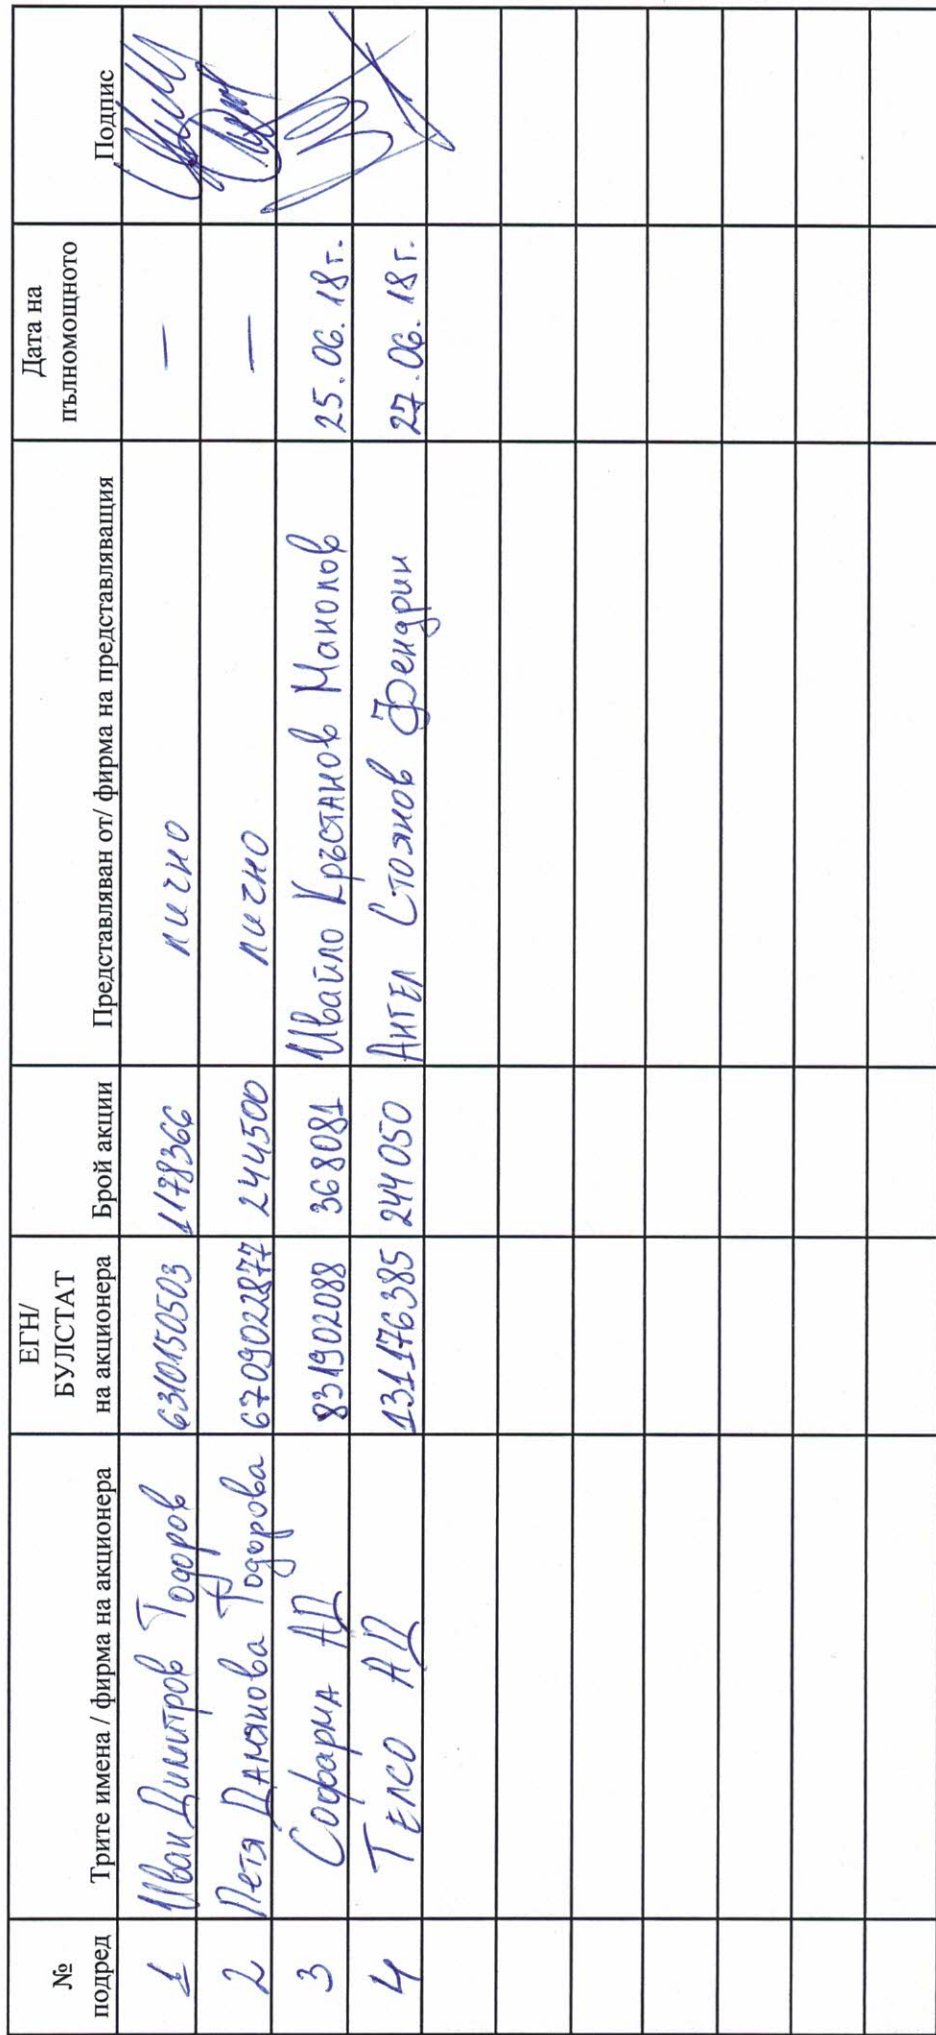 № подред Трите имена / фирма на акционера ЕГН/ БУЛСТАТ на акционера Брой акции Представляван от/ фирма на представляващия Дата на пълномощното Подпис
1 Иван Димитров Тодоров 6310150503 1178366 лично —
2 Петя Дамянова Тодорова 6709022877 244500 лично —
3 Софарма АД 831902088 368081 Ивайло Кръстанов Манолов 25.06.18г.
4 Телсо АД 131176385 244050 Ангел Стоянов Фендрин 27.06.18г.